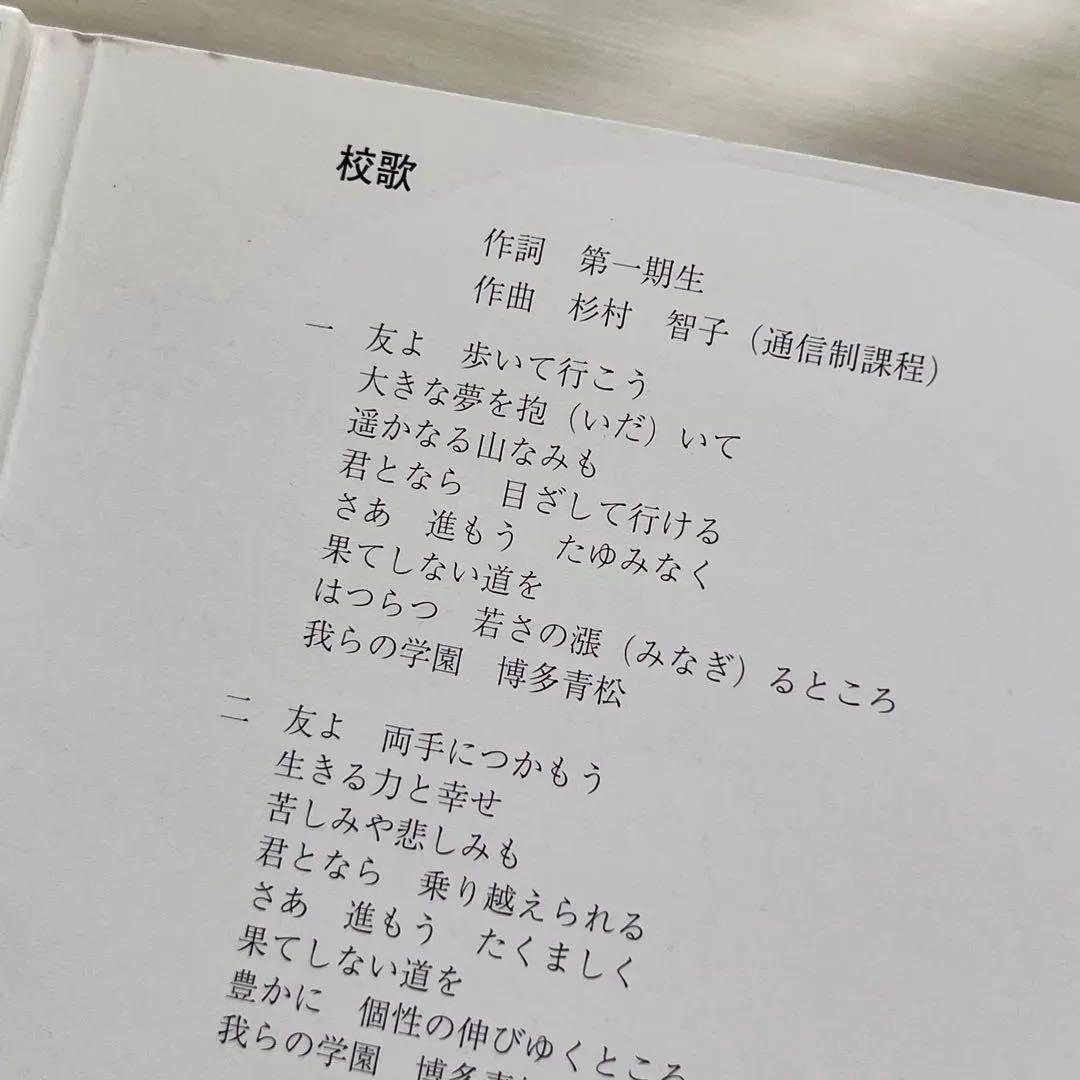 校歌
作詞　第一期生
作曲　杉村　智子（通信制課程）
一　友よ　歩いて行こう
大きな夢を抱（いだ）いて
遥かなる山なみも
君となら　目ざして行ける
さあ　進もう　たゆみなく
果てしない道を
はつらつ　若さの漲（みなぎ）るところ
我らの学園　博多青松
二　友よ　両手につかもう
生きる力と幸せ
苦しみや悲しみも
君となら　乗り越えられる
さあ　進もう　たくましく
果てしない道を
豊かに　個性の伸びゆくところ
我らの学園　博多青松